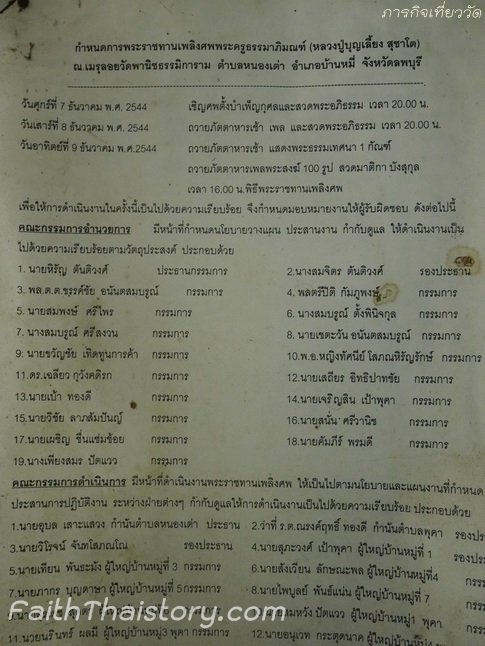 ภารกิจเที่ยววัด
กำหนดการพระราชทานเพลิงศพพระครูธรรมาภิมณฑ์ (หลวงปู่บุญเลี้ยง สุชาโต)
ณ.เมรุลอยวัดพานิชธรรมิการาม ตำบลหนองเต่า อำเภอบ้านหมี่ จังหวัดลพบุรี
วันศุกร์ที่ 7 ธันวาคม พ.ศ. 2544 เชิญศพตั้งบำเพ็ญกุศลและสวดพระอภิธรรม เวลา 20.00 น.
วันเสาร์ที่ 8 ธันวาคม พ.ศ. 2544 ถวายภัตตาหารเช้า เพล และสวดพระอภิธรรม เวลา 20.00 น.
วันอาทิตย์ที่ 9 ธันวาคม พ.ศ.2544 ถวายภัตตาหารเช้า แสดงพระธรรมเทศนา 1 กัณฑ์
ถวายภัตตาหารเพลพระสงฆ์ 100 รูป สวดมาติกา บังสุกุล
เวลา 16.00 น.พิธีพระราชทานเพลิงศพ
เพื่อให้การดำเนินงานในครั้งนี้เป็นไปด้วยความเรียบร้อย จึงกำหนดมอบหมายงานให้ผู้รับผิดชอบ ดังต่อไปนี้
คณะกรรมการอำนวยการ มีหน้าที่กำหนดนโยบายวางแผน ประสานงาน กำกับดูแล ให้ดำเนินงานเป็น
ไปด้วยความเรียบร้อยตามวัตถุประสงค์ ประกอบด้วย
1. นายหิรัญ ตันติวงศ์ ประธานกรรมการ 2.นางสมจิตร ตันติวงศ์ รองประธาน
3. พล.ต.ต.ขรรค์ชัย อนันตสมบูรณ์ กรรมการ 4. พลตรีปิติ กัมภูพงษ์ กรรมการ
5. นายสมพงษ์ ศรีไพร กรรมการ 6. นางสมบูรณ์ ตั้งพินิจกุล กรรมการ
7. นางสมบูรณ์ ศรีสงวน กรรมการ 8. นายเชตะวัน อนันตสมบูรณ์ กรรมการ
9: นายขวัญชัย เทิดทูนการค้า กรรมการ 10.พ.อ.หญิงทัศนีย์ โสภณหิรัญรักษ์ กรรมการ
11.ดร.เฉลียว กุวังคดิรก กรรมการ 12.นายเสถียร อิทธิปาทชัย กรรมการ
13.นายเบ้า ทองดี กรรมการ 14.นายเจริญสิน เป้าพุคา กรรมการ
15.นายวิชัย ลาภสัมปันญ์ กรรมการ 16.นายสุนั่น ศรีวานิช กรรมการ
17.นายเผชิญ ชื่นแช่มช้อย กรรมการ 18.นายคัมภีร์ พรมดี กรรมการ
19.นางเพียงสมร ปัตแวว กรรมการ
คณะกรรมการดำเนินการ มีหน้าที่ดำเนินงานพระราชทานเพลิงศพ ให้เป็นไปตามนโยบายและแผนงานที่กำหนด
ประสานการปฏิบัติงาน ระหว่างฝ่ายต่างๆ กำกับดูแลให้การดำเนินงานเป็นไปด้วยความเรียบร้อย ประกอบด้วย
1.นายอุบล เสาะแสวง กำนันตำบลหนองเต่า ประธาน 2.ว่าที่ ร.ต.ณรงค์ฤทธิ์ ทองดี กำนันตำบลพุคา รอง
3.นายวิโรจน์ จันทโสภณโณ รองประธาน 4.นายสุภะวงศ์ เป้าพุคา ผู้ใหญ่บ้านหมู่ที่ 1 กรรมการ
5.นายเทียน พันธะมัง ผู้ใหญ่บ้านหมู่ที่ 3 กรรมการ 6.นายสังเวียน ลักษณะพล ผู้ใหญ่บ้านหมู่ที่4
7.นายภากร บุญดาษา ผู้ใหญ่บ้านหมู่ที่ 5กรรมการ 8.นายไพบูลย์ พันธ์แน่น ผู้ใหญ่บ้านหมู่ที่ 7
ปัตแวว ผู้ใหญ่บ้านหมู่1 พุคา กรรมการ
11.นายนรินทร์ ผลมี ผู้ใหญ่บ้านหมู่3 พุคา กรรมการ 12.นายอนุเวท กระตุดนาค ผู้ใหญ่บ้านหมู่4
FaithThaistory.com